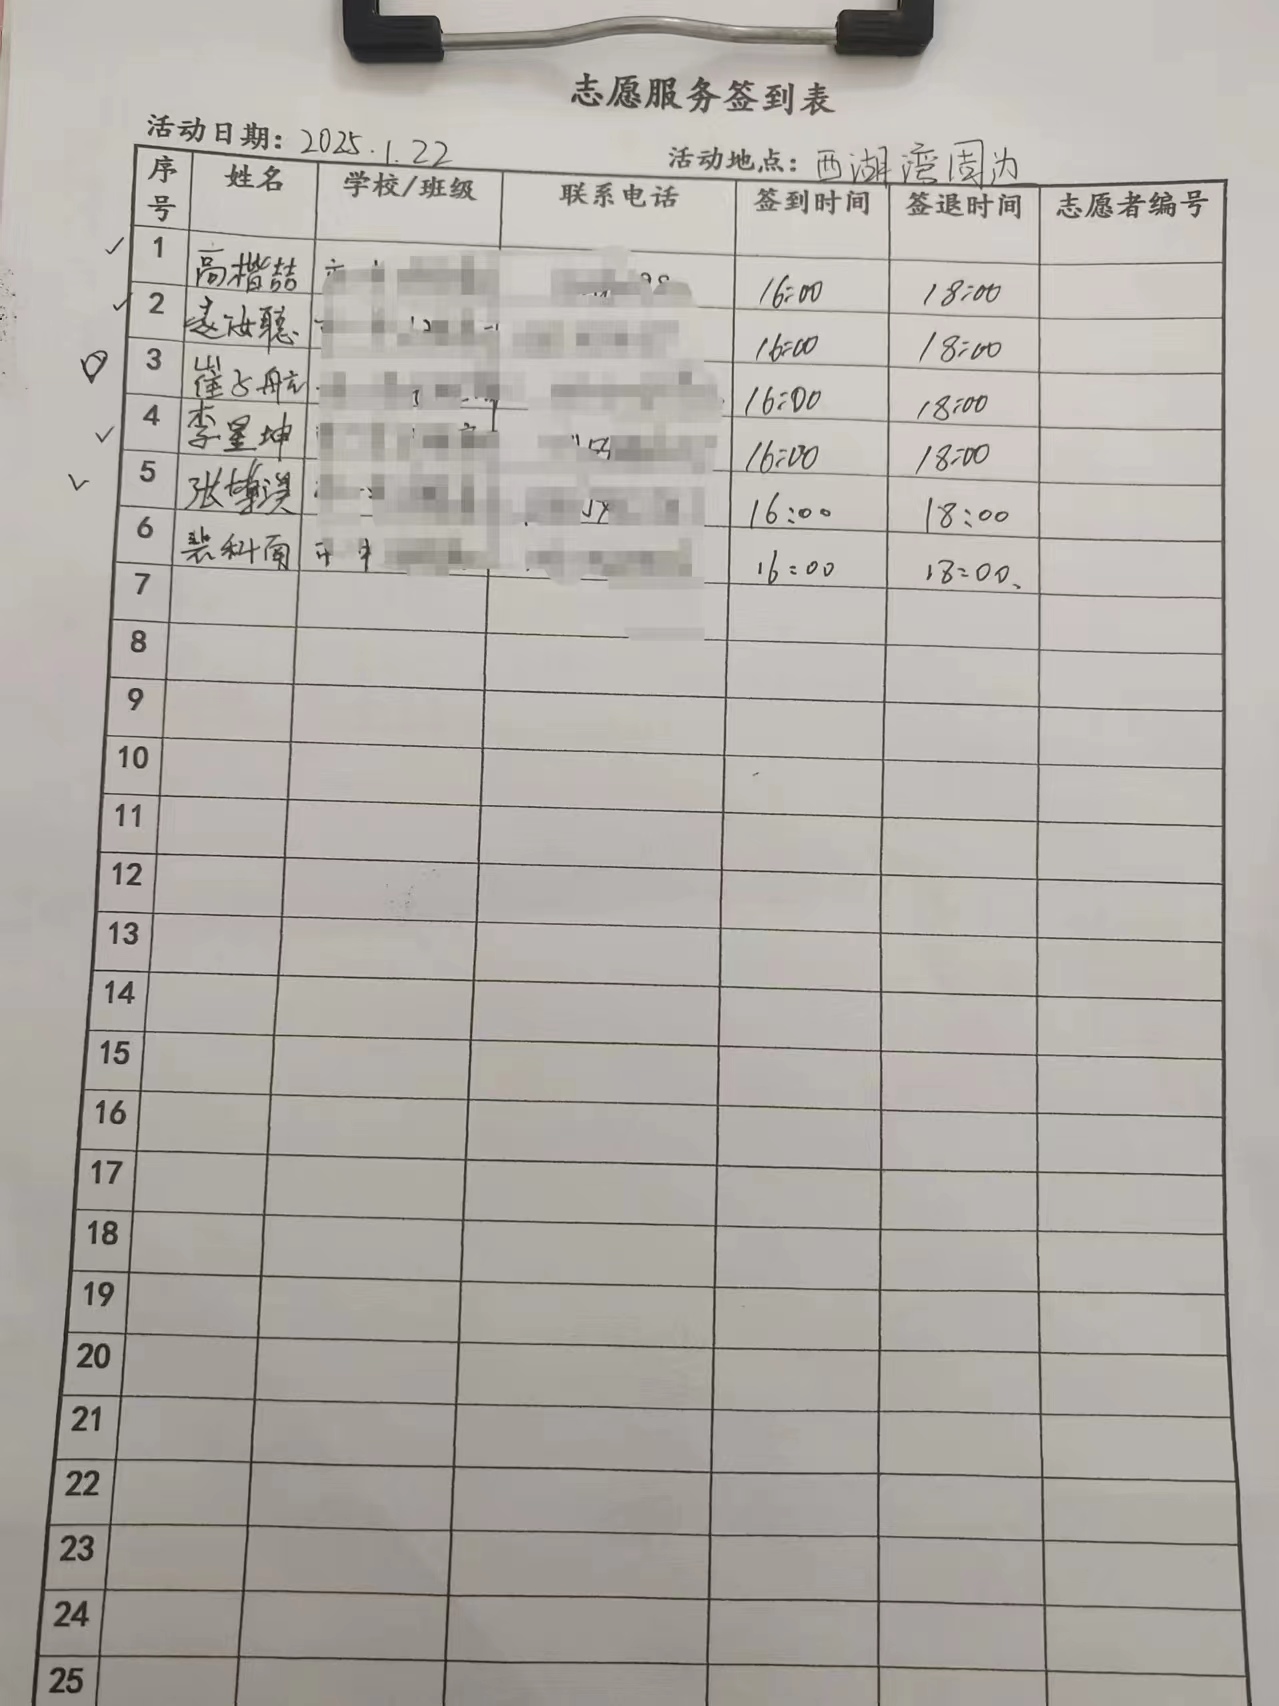 志愿服务签到表
活动日期：2025.1.22 活动地点：西湖湾周边
序号 姓名 学校/班级 联系电话 签到时间 签退时间 志愿者编号
1 高楷喆 16:00 18:00
2 汝聪 16:00 18:00
3 崔 航 16:00 18:00
4 李星坤 16:00 18:00
5 张博淏 16:00 18:00
6 裴科 16:00 18:00.
7
8
9
10
11
12
13
14
15
16
17
18
19
20
21
22
23
24
25